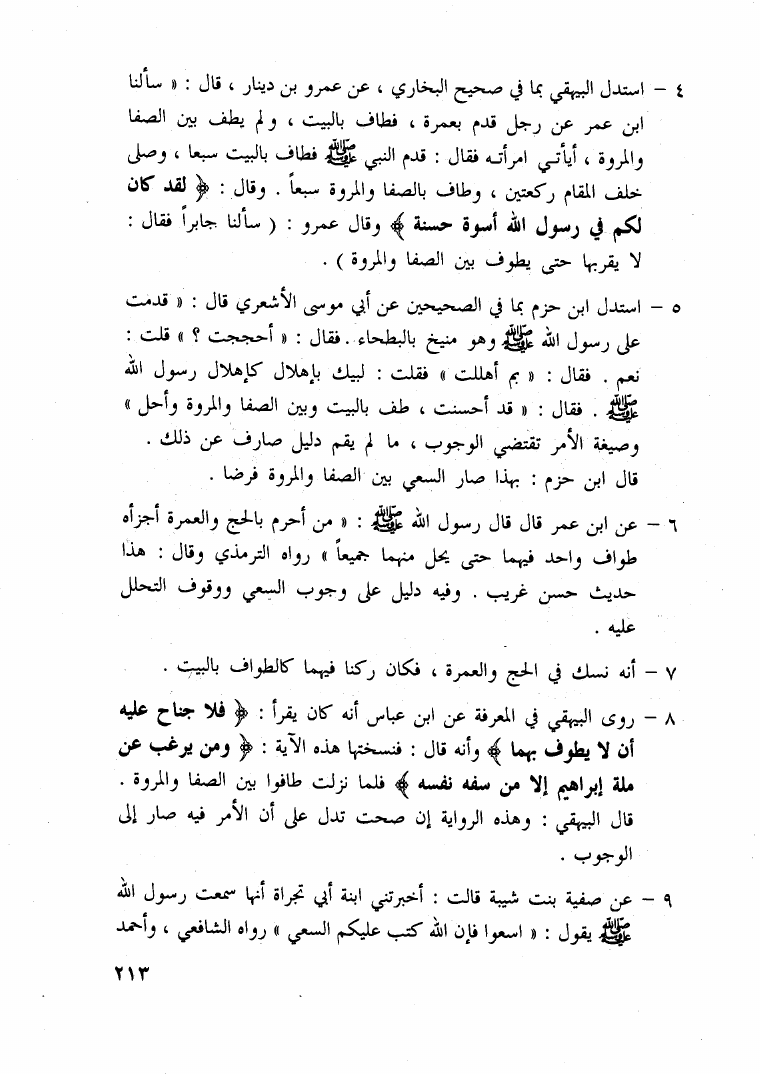 ٤ – استدل البيهقي بما في صحيح البخاري ، عن عمرو بن دينار ، قال : « سألنا
ابن عمر عن رجل قدم بعمرة ، فطاف بالبيت ، ولم يطف بين الصفا
والمروة ، أيأتي امرأته فقال : قدم النبي ﷺ فطاف بالبيت سبعا ، وصلى
خلف المقام ركعتين ، وطاف بالصفا والمروة سبعاً . وقال : ﴿ لقد كان
لكم في رسول الله أسوة حسنة ﴾ وقال عمرو : ( سألنا جابراً فقال :
لا يقربها حتى يطوف بين الصفا والمروة ) .
٥ – استدل ابن حزم بما في الصحيحين عن أبي موسى الأشعري قال : « قدمت
على رسول الله ﷺ وهو منيخ بالبطحاء . فقال : « أحججت ؟ » قلت :
نعم . فقال : « بم أهللت » فقلت : لبيك بإهلال كإهلال رسول الله
ﷺ . فقال : « قد أحسنت ، طف بالبيت وبين الصفا والمروة وأحل »
وصيغة الأمر تقتضي الوجوب ، ما لم يقم دليل صارف عن ذلك .
قال ابن حزم : بهذا صار السعي بين الصفا والمروة فرضا .
٦ – عن ابن عمر قال قال رسول الله ﷺ : « من أحرم بالحج والعمرة أجزأه
طواف واحد فيهما حتى يحل منهما جميعاً » رواه الترمذي وقال : هذا
حديث حسن غريب . وفيه دليل على وجوب السعي ووقوف التحلل
عليه .
٧ – أنه نسك في الحج والعمرة ، فكان ركنا فيهما كالطواف بالبيت .
٨ – روى البيهقي في المعرفة عن ابن عباس أنه كان يقرأ : ﴿ فلا جناح عليه
أن لا يطوف بهما ﴾ وأنه قال : فنسختها هذه الآية : ﴿ ومن يرغب عن
ملة إبراهيم إلا من سفه نفسه ﴾ فلما نزلت طافوا بين الصفا والمروة .
قال البيهقي : وهذه الرواية إن صحت تدل على أن الأمر فيه صار إلى
الوجوب .
٩ – عن صفية بنت شيبة قالت : أخبرتني ابنة أبي تجراة أنها سمعت رسول الله
ﷺ يقول : « اسعوا فإن الله كتب عليكم السعي » رواه الشافعي ، وأحمد
٢١٣